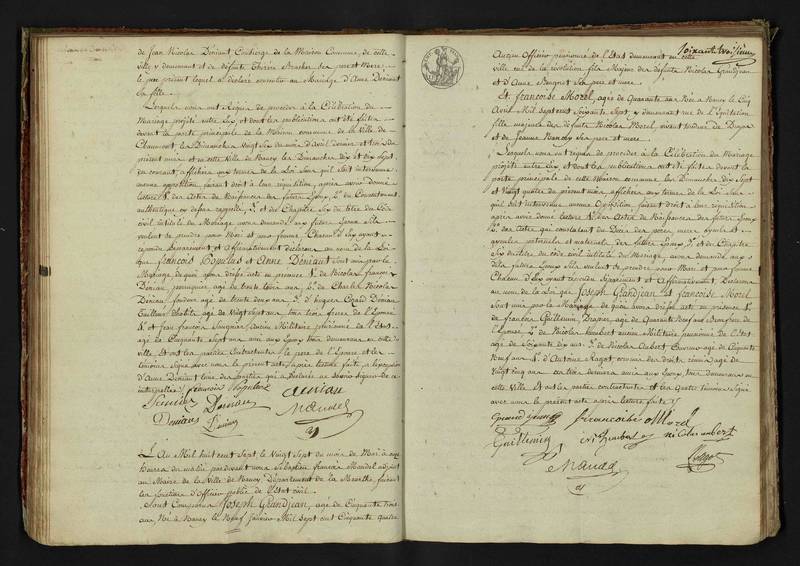 de Jean Nicolas Déniant Concierge de la Maison Commune, de cette
ville y demeurant et de défunte Thérèse Bracher ses père et Mère.
le père présent lequel a déclaré consentir au Mariage d'Anne Déniant
sa fille.
Lesquels nous ont Requis de procéder à la Célébration du
Mariage projetté entre Eux et dont les publications ont été faites
devant la porte principale de la Maison commune de la Ville de
Chaumont les Dimanches Vingt Six du mois d'Avril dernier et trois du
présent mois et en cette Ville de Nancy les Dimanches dix et dix Sept
du courant, affichées aux termes de la Loi sans qu'il soit intervenu
aucune opposition faisant droit à leur réquisition, après avoir Donné
lecture 1° des Actes de Naissances des futurs Epoux, 2° du Consentement
authentique 3° et du Chapitre Six du titre du Code
civil intitulé du Mariage avons demandé aux futurs Epoux s'ils
veulent se prendre pour Mari et pour femme, Chacun d'Eux ayant
répondu Séparément et Affirmativement déclarons au nom de la Loi
que françois Populus et Anne Déniant sont unis par le
Mariage de quoi avons dressé acte en présence 1° de Nicolas françois
Déniant, perruquier agé de trente trois ans 2° de Charles Nicolas
Déniant fondeur agé de trente deux ans 3° d'hugues Cézard Déniant
Tailleur d'habits agé de Vingt sept ans tous trois frères de l'Epouse
4° et de françois ancien Militaire pensionné de l'Etat
agé de Cinquante Sept ans ami aux Epoux tous demeurans en cette
ville Et ont les parties Contractantes le père de l'Epouse et les
témoins Signé avec nous le présent acte après lecture faite, à l'exception
d'Anne Déniant l'une des parties qui a déclaré ne savoir signer de ce
interpellée / françois Populus
Déniant Déniant
Déniant Mandel
L'An Mil huit cent Sept, le Vingt Sept du mois de Mai à onze
heures du matin pardevant nous Sébastien françois Mandel adjoint
au Maire de la Ville de Nancy, Département de la Meurthe, faisant
les fonctions d'Officier public de l'Etat civil.
Sont Comparus Joseph Grandjean, agé de Cinquante trois
ans, Né à Nancy le Neuf janvier Mil sept cent Cinquante quatre
Soixante troisième
Ancien Officier pensionné de l'Etat demeurant en cette
ville rue de la révolution fils Majeur des défunts Nicolas Grandjean
et d'Anne ses père et mère.
Et françoise Morel, agée de Quarante ans Née à Nancy le Cinq
Avril Mil sept cent Soixante Sept, y demeurant rue de l'Equitation
fille majeure des défunts Nicolas Morel, vivant tondeur de Draps
et de Jeanne ses père et mère.
Lesquels nous ont requis de procéder à la Célébration du Mariage
projetté entre Eux et dont les publications ont été faites devant la
porte principale de cette Maison commune les Dimanches dix Sept
et Vingt quatre du présent mois affichées aux termes de la Loi sans
qu'il soit intervenu aucune Opposition, faisant droit à leur réquisition
après avoir donné lecture 1° des Actes de Naissances des futurs Epoux
2° des actes qui constatent le Décès des pères mères ayeuls et
ayeules paternels et maternels des futurs Epoux 3° et du Chapitre
Six du titre du code civil intitulé du Mariage, avons demandé aux
dits futurs Epoux s'ils veulent se prendre pour Mari et pour femme
Chacun d'Eux ayant répondu Séparément et Affirmativement Déclarons
au nom de la Loi que Joseph Grandjean et françoise Morel
sont unis par le Mariage de quoi avons dressé acte en présence 1°
de françois Guillemin Drapier agé de Quarante Neuf ans
de l'Epouse 2° de Nicolas humbert ancien Militaire pensionné de l'Etat
agé de Soixante dix ans 3° de Nicolas Aubert agé de Cinquante
Neuf ans 4° d'Antoine Ragot commis des droits réunis agé de
Vingt cinq ans ces trois derniers amis aux Epoux, tous demeurans en
cette Ville Et ont les parties contractantes et les Quatre témoins Signé
avec nous le présent acte après lecture faite /
Grandjean françoise Morel
Guillemin humbert nicolas aubert
Mandel Ragot